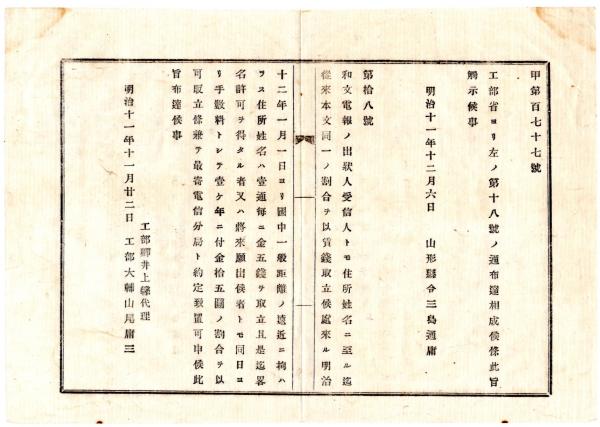 甲第百七十七號
工部省ヨリ左ノ第十八號ノ通布達相成候條此旨
觸示候事
明治十一年十二月六日　山形縣令三島通庸
第拾八號
和文電報ノ出狀人受信人トモ住所姓名ニ至ル迄
從來本文同一ノ割合ヲ以賃錢取立候處來ル明治
十二年一月一日ヨリ國中一般距離ノ遠近ニ拘ハ
ラス住所姓名ハ壹通毎ニ金五錢ヲ取立且是迄畧
名許可ヲ得タル者又ハ將來願出候者トモ同日ヨ
リ手數料トシテ壹ケ年ニ付金拾五圓ノ割合ヲ以
可取立條兼テ最寄電信分局ト約定致置可申候此
旨布達候事
工部卿井上馨代理
明治十一年十一月廿二日　工部大輔山尾庸三